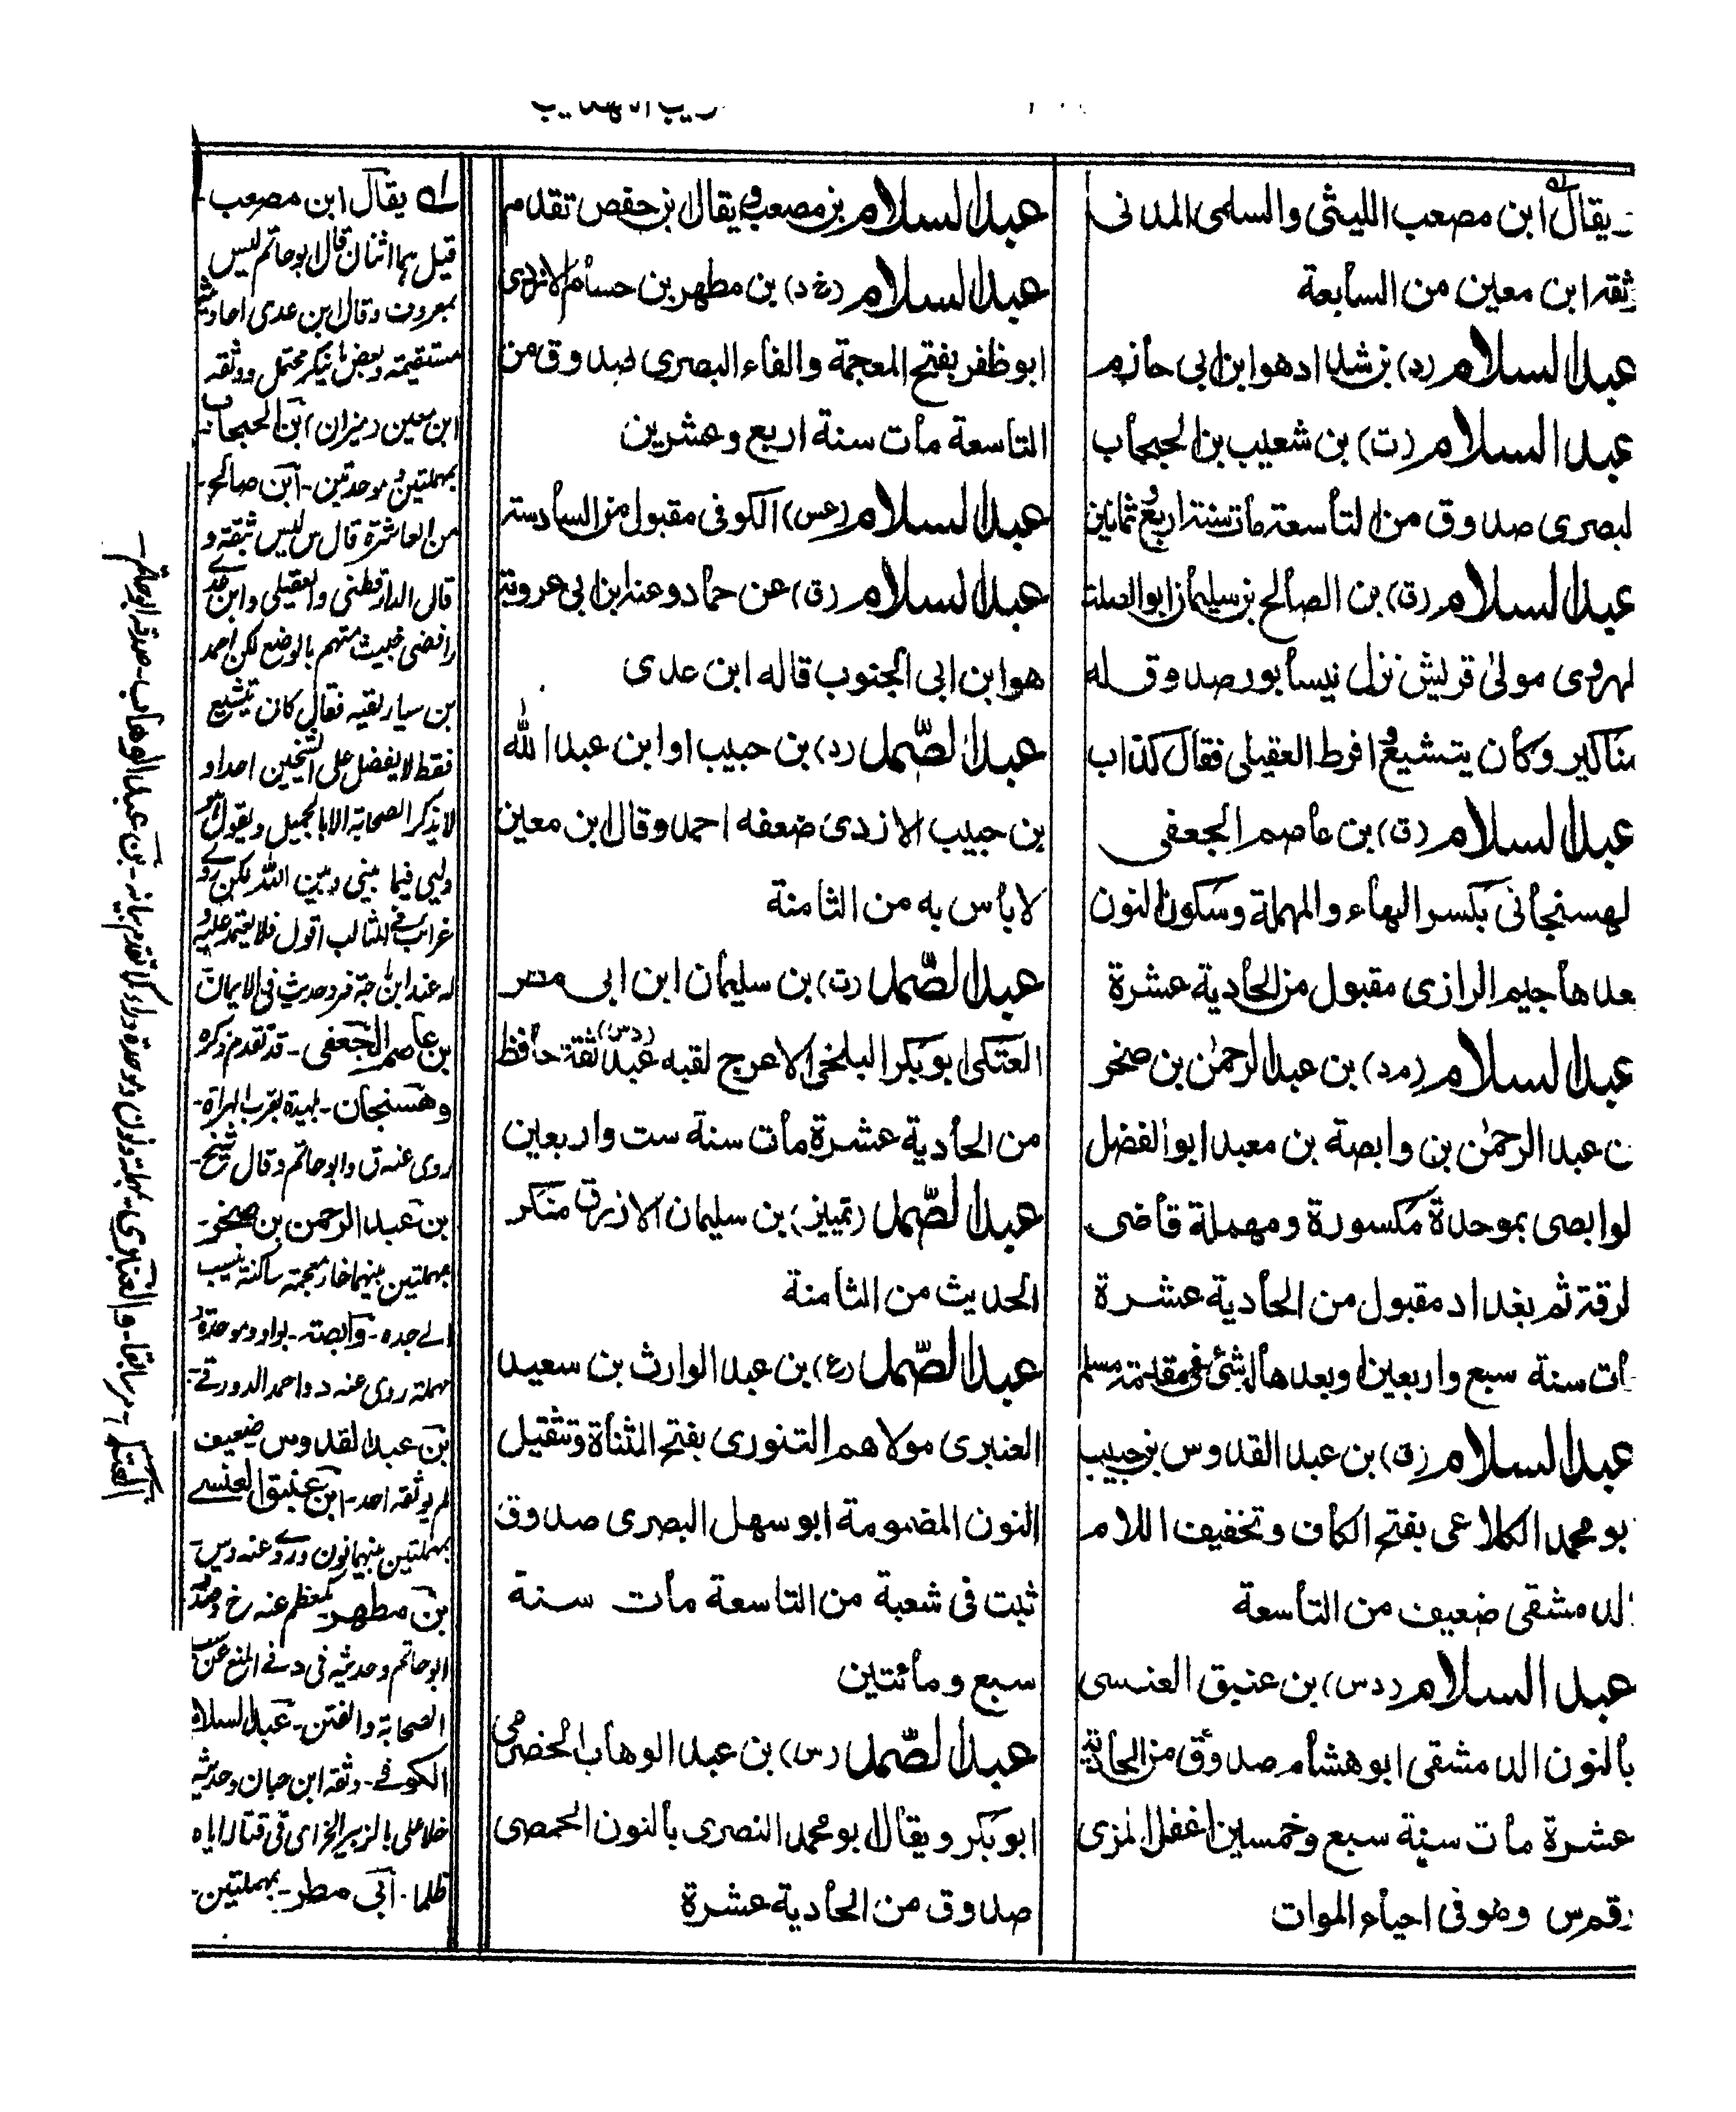 يقال ابن مصعب الليثى والسلمى المدنى
ثقه ابن معين من السابعة
عبد السلام (د) بن شداد هو ابن ابى حازم
عبد السلام (ت) بن شعيب بن الحبحاب
لبصرى صدوق من التاسعة مات سنة اربع وثمانين
عبد السلام (ق) بن الصالح بن سليمان ابو الصلت
لهروى مولى قريش نزل نيسابور صدوق له
مناكير وكان يتشيع وافرط العقيلى فقال كذاب
عبد السلام (ق) بن عاصم الجعفى
لهسنجانى بكسر الهاء والمهملة وسكون النون
بعدها جيم الرازى مقبول من الحادية عشرة
عبد السلام (مد) بن عبد الرحمٰن بن صخر
ن عبد الرحمٰن بن وابصة بن معبد ابو الفضل
لوابصى بموحدة مكسورة ومهملة قاضى
لرقة ثم بغداد مقبول من الحادية عشرة
ات سنة سبع واربعين وبعدها له شئ فى مقدمة مسلم
عبد السلام (ق) بن عبد القدوس بن حبيب
بو محمد الكلاعى بفتح الكاف وتخفيف اللام
الدمشقى ضعيف من التاسعة
عبد السلام (دس) بن عتيق العنسى
بالنون الدمشقى ابو هشام صدوق من الحادية
عشرة مات سنة سبع وخمسين اغفل المزى
رقم س وهو فى احياء الموات
عبد السلام بن مصعب ويقال بن حفص تقدم
عبد السلام (خ د) بن مطهر بن حسام الازدى
ابو ظفر بفتح المعجمة والفاء البصرى صدوق من
التاسعة مات سنة اربع وعشرين
عبد السلام (عس) الكوفى مقبول من السادسة
عبد السلام (ق) عن حماد وعنه ابن ابى عروبة
هو ابن ابى الجنوب قاله ابن عدى
عبد الصّمد (د) بن حبيب او ابن عبد الله
بن حبيب الازدى ضعفه احمد وقال ابن معين
لا باس به من الثامنة
عبد الصّمد (ت) بن سليمان ابن ابى مطر
العتكى ابو بكر البلخى الاعرج لقبه عبدوس ثقة حافظ
من الحادية عشرة مات سنة ست واربعين
عبد الصّمد (تمييز) بن سليمان الازرق منكر
الحديث من الثامنة
عبد الصّمد (ع) بن عبد الوارث بن سعيد
العنبرى مولاهم التنورى بفتح المثناة وتثقيل
النون المضمومة ابو سهل البصرى صدوق
ثبت فى شعبة من التاسعة مات سنة
سبع ومائتين
عبد الصّمد (س) بن عبد الوهاب الحضرمى
ابو بكر ويقال ابو محمد النصرى بالنون الحمصى
صدوق من الحادية عشرة
يقال ابن مصعب
قيل هما اثنان قال ابو حاتم ليس
بمعروف وقال ابن عدى احاديثه
مستقيمة وبعض ما ينكر محتمل ووثقه
ابن معين ميزان ابن الحبحاب
بمهملتين وموحدتين - ابن صالح -
من العاشرة قال س ليس بثقة و
قال الدارقطنى والعقيلى وابن عدى
رافضى خبيث متهم بالوضع لكن احمد
بن سيار لقيه فقال كان يتشيع
فقط لا يفضل على الشيخين احدا و
لا يذكر الصحابة الا بالجميل ويقول
فيما بينى وبين الله لكن روى
غرائب فى المثالب اقول فلا يعتمد عليه
له عند ابن ماجة فرد حديث فى الايمان
بن عاصم الجعفى - قد تقدم ذكره
وهسنجان - بليدة بقرب الهراة -
روى عنه ق وابو حاتم وقال شيخ -
بن عبد الرحمن بن صخر -
بمهملتين بينهما خاء معجمة ساكنة ينسب
الى جده - وابصة - بواو وموحدة و
مهملة روى عنه د واحمد الدورقى -
بن عبد القدوس ضعيف
لم يوثقه احد - ابن عتيق العنسى
بمهملتين بينهما نون وروى عنه دس
بن مطهر كمعظم عنه خ د
ابو حاتم وحديثه فى د فى المنع عن سب
الصحابة والفتن - عبد السلام
الكوفى - وثقه ابن حبان وحديثه
خلا على بالزبير فى قتاله اياه
ظلما - ابى مطر - بمهملتين -
العتكى - مر سابقا - والعنبرى - ابن عبد الوهاب - صدقه ابو حاتم -